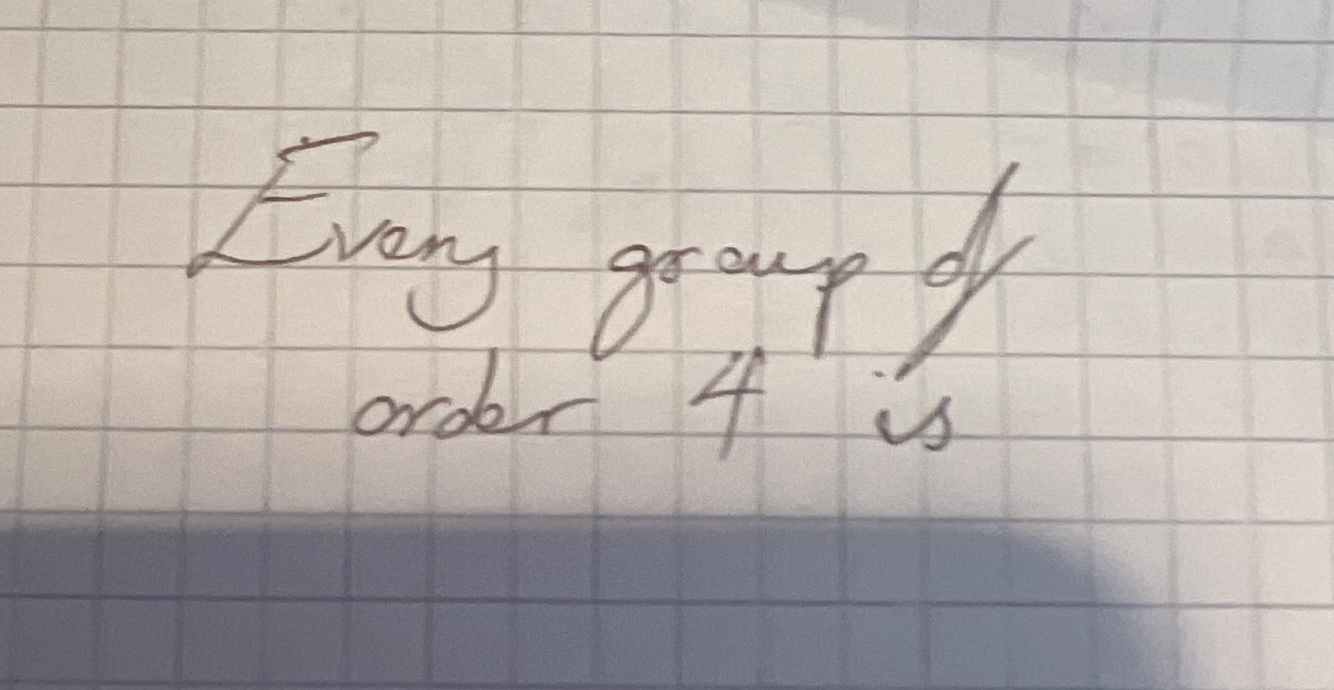 Every group of
order 4 is